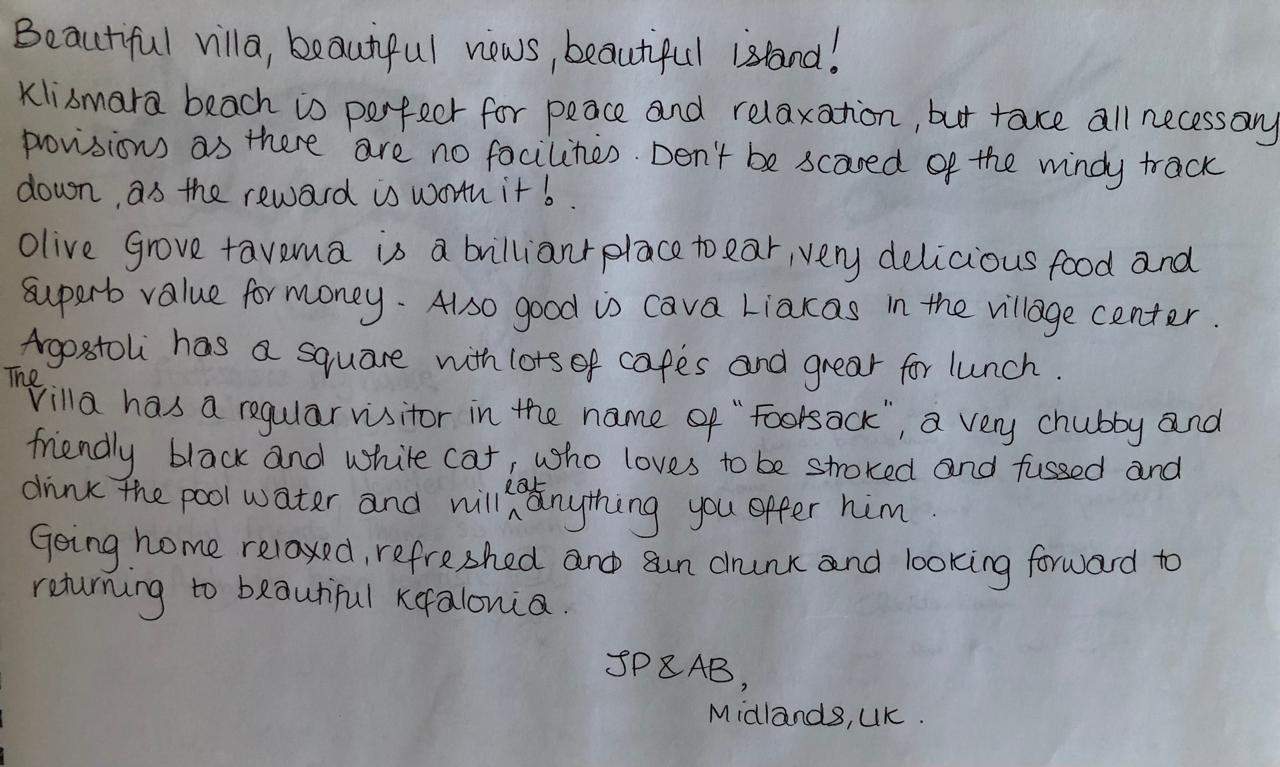 Beautiful villa, beautiful views, beautiful island!
Klismata beach is perfect for peace and relaxation, but take all necessary
provisions as there are no facilities. Don't be scared of the windy track
down, as the reward is worth it!
Olive Grove taverna is a brilliant place to eat, very delicious food and
superb value for money. Also good is Cava Liakas in the village center.
Agostoli has a square with lots of cafés and great for lunch.
The villa has a regular visitor in the name of "Footsack", a very chubby and
friendly black and white cat, who loves to be stroked and fussed and
drink the pool water and will eat anything you offer him.
Going home relaxed, refreshed and sun drunk and looking forward to
returning to beautiful Kefalonia.
JP & AB,
Midlands, UK.